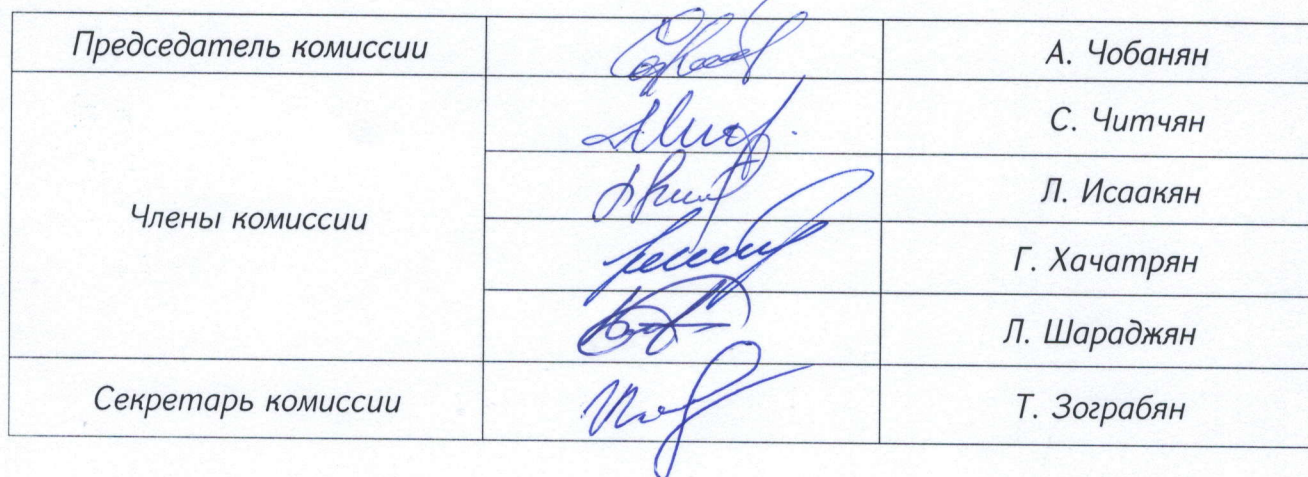 Председатель комиссии
А. Чобанян
Члены комиссии
С. Читчян
Л. Исаакян
Г. Хачатрян
Л. Шараджян
Секретарь комиссии
Т. Зограбян